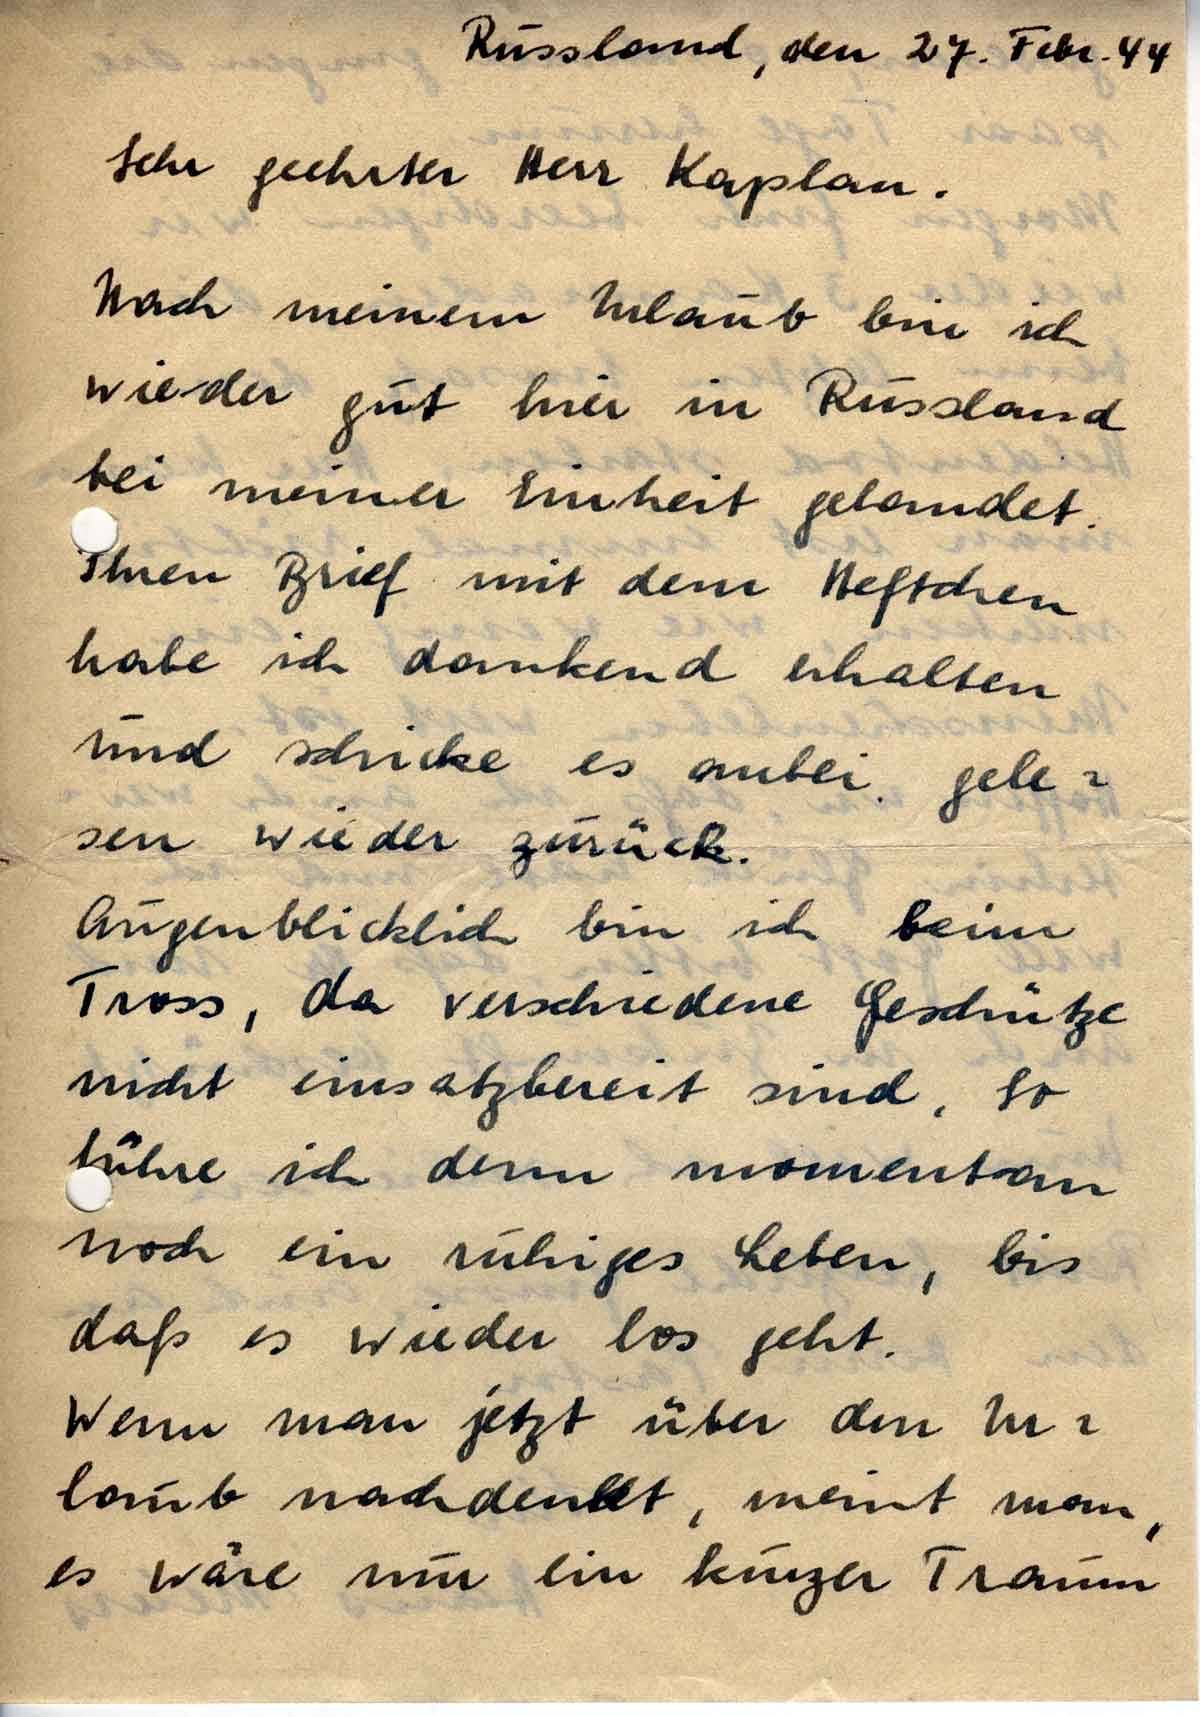 Russland, den 27. Febr. 44
Sehr geehrter Herr Kaplan.
Nach meinem Urlaub bin ich
wieder gut hier in Russland
bei meiner Einheit gelandet.
Ihren Brief mit dem Heftchen
habe ich dankend erhalten
und schicke es anbei gele=
sen wieder zurück.
Augenblicklich bin ich beim
Tross, da verschiedene Geschütze
nicht einsatzbereit sind, so
führe ich denn momentan
noch ein ruhiges Leben, bis
daß es wieder los geht.
Wenn man jetzt über den Ur=
laub nachdenkt, meint man,
es wäre nur ein kurzer Traum